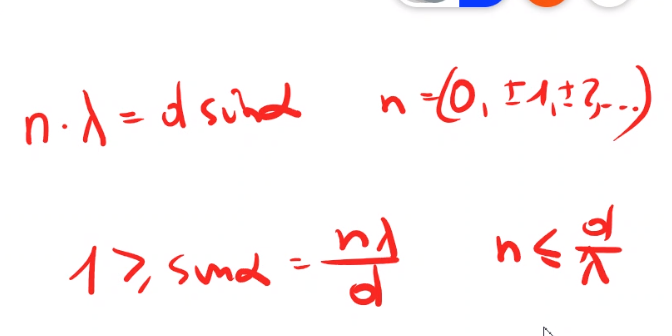 n · λ = d sinα n = (0, ±1, ±2, ...)
1 ≥ sinα = nλ/d n ≤ d/λ